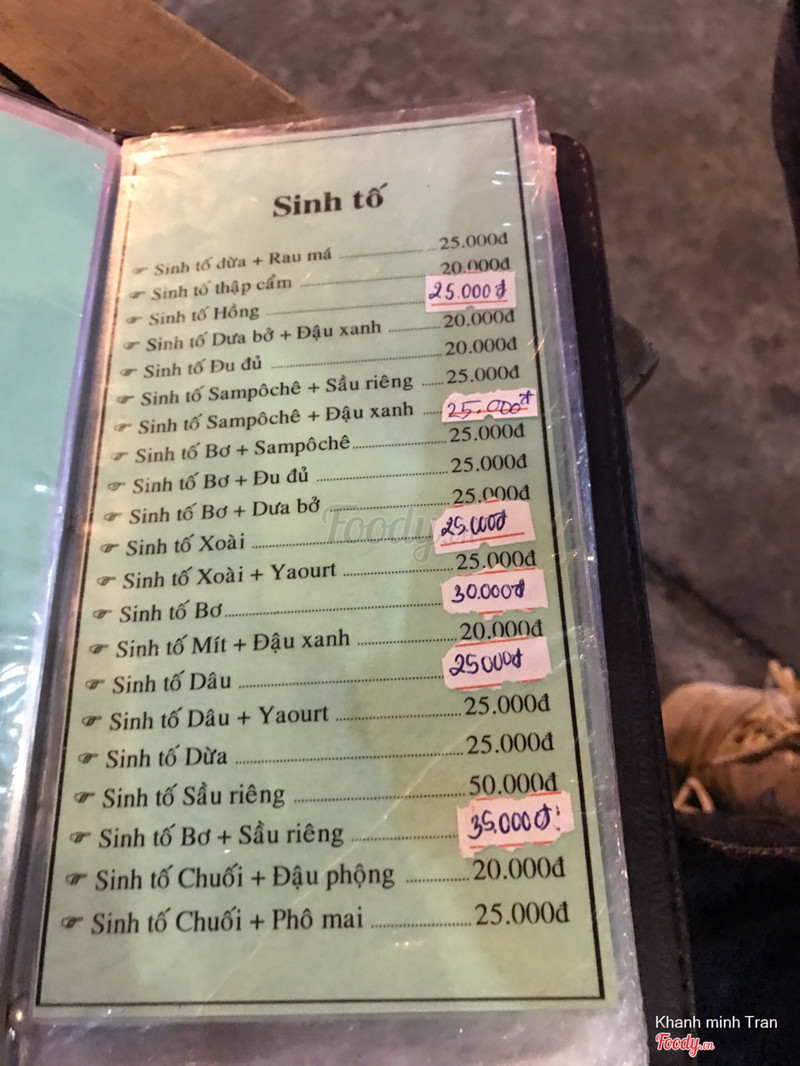 Sinh tố
☞ Sinh tố dừa + Rau má ........ 25.000đ
☞ Sinh tố thập cẩm ........ 20.000đ
☞ Sinh tố Hồng ........ 25.000đ
☞ Sinh tố Dưa bở + Đậu xanh ........ 20.000đ
☞ Sinh tố Đu đủ ........ 20.000đ
☞ Sinh tố Sampôchê + Sầu riêng ........ 25.000đ
☞ Sinh tố Sampôchê + Đậu xanh ........ 25.000đ
☞ Sinh tố Bơ + Sampôchê ........ 25.000đ
☞ Sinh tố Bơ + Đu đủ ........ 25.000đ
☞ Sinh tố Bơ + Dưa bở ........ 25.000đ
☞ Sinh tố Xoài ........ 25.000đ
☞ Sinh tố Xoài + Yaourt ........ 25.000đ
☞ Sinh tố Bơ ........ 30.000đ
☞ Sinh tố Mít + Đậu xanh ........ 20.000đ
☞ Sinh tố Dâu ........ 25000đ
☞ Sinh tố Dâu + Yaourt ........ 25.000đ
☞ Sinh tố Dừa ........ 25.000đ
☞ Sinh tố Sầu riêng ........ 50.000đ
☞ Sinh tố Bơ + Sầu riêng ........ 35.000đ
☞ Sinh tố Chuối + Đậu phộng ........ 20.000đ
☞ Sinh tố Chuối + Phô mai ........ 25.000đ
Foody.vn
Khanh minh Tran
Foody.vn